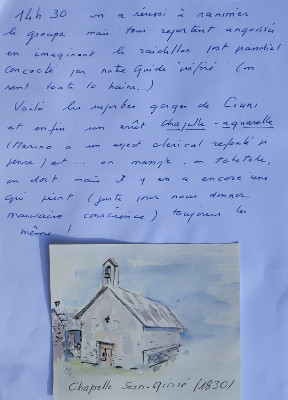 14h30 on a réussi à ranimer
le groupe mais tous repartent angoissés
en imaginant le raidillon post prandial
concocté par notre guide "préféré" (on
sent toute la haine..)
Voilà les superbes gorges de Cians
et enfin un arrêt chapelle-aquarelle
(Marino a un aspect clérical refoulé je
pense) et ... on mange, on tchatche,
on dort mais il y en a encore une
qui peint (juste pour nous donner
mauvaise conscience) toujours la
même !
Chapelle San-Girié (1830)